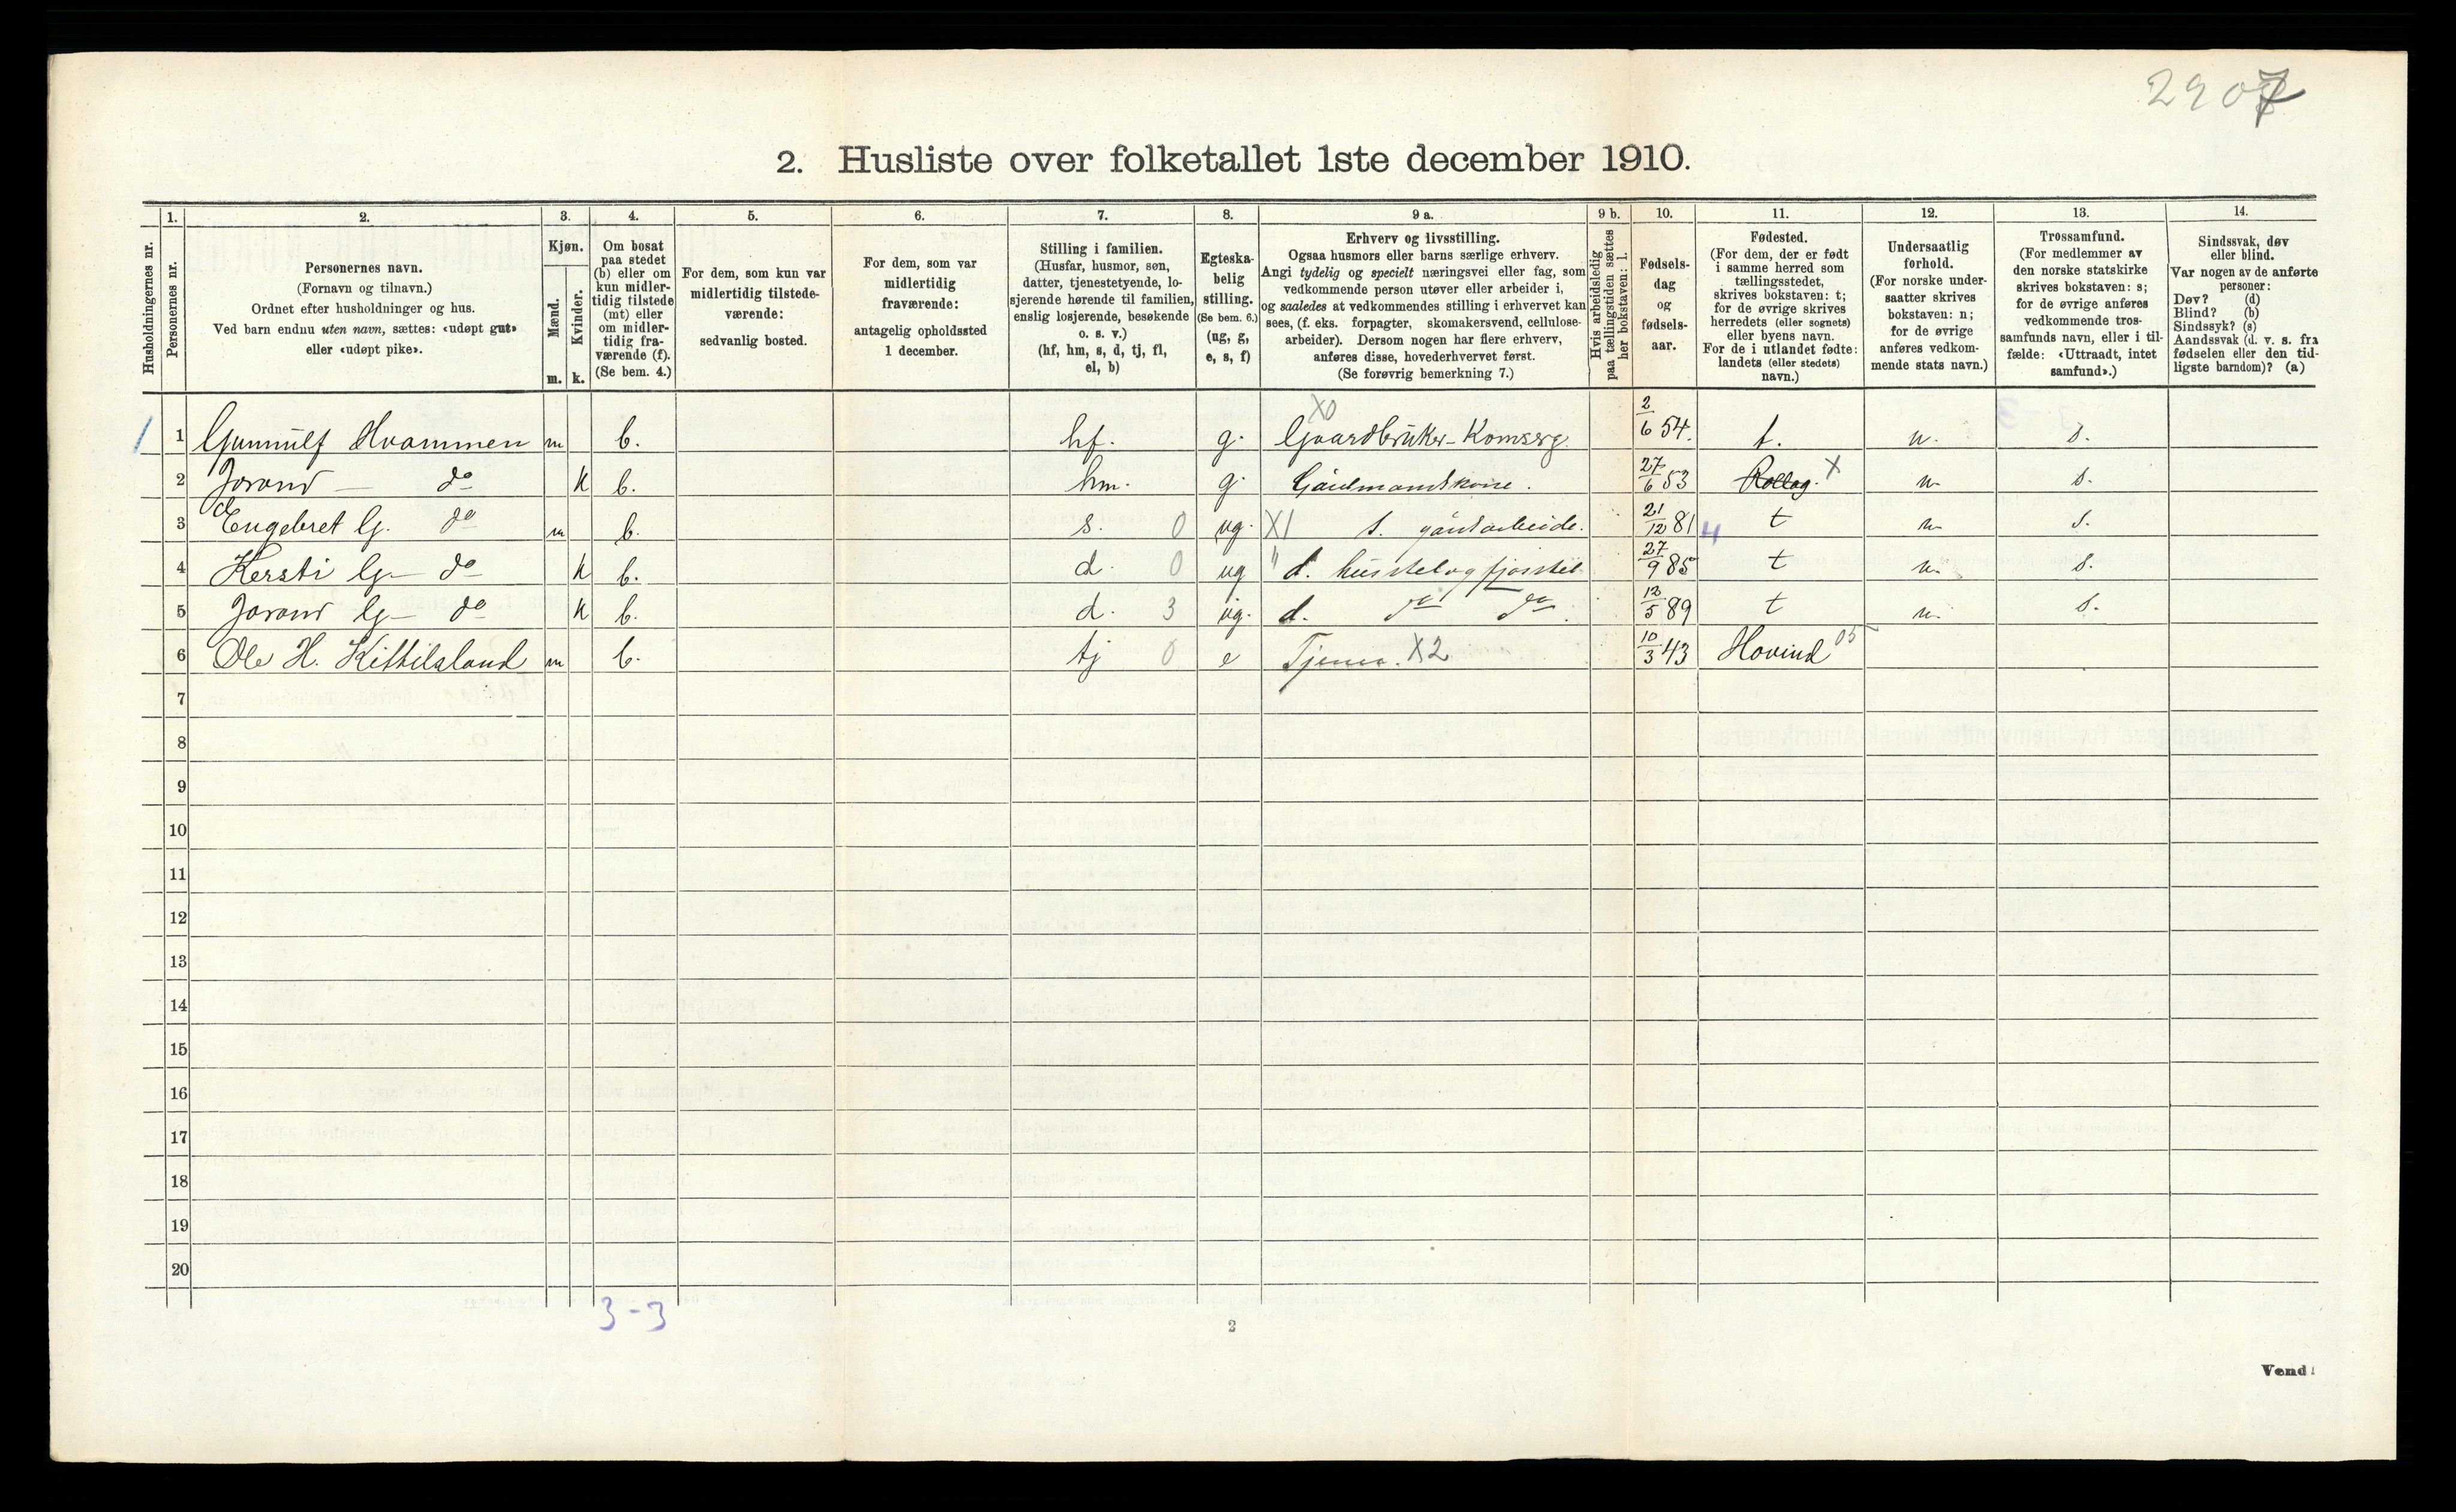 2907
2. Husliste over folketallet 1ste december 1910.
Husholdningernes nr.
1. Personernes nr.
2. Personernes navn.
(Fornavn og tilnavn.)
Ordnet efter husholdninger og hus.
Ved barn endnu uten navn, sættes: «udøpt gut»
eller «udøpt pike».
3. Kjøn.
Mænd. m.
Kvinder. k.
4. Om bosat
paa stedet
(b) eller om
kun midler-
tidig tilstede
(mt) eller
om midler-
tidig fra-
værende (f).
(Se bem. 4.)
5. For dem, som kun var
midlertidig tilstede-
værende:
sedvanlig bosted.
6. For dem, som var
midlertidig
fraværende:
antagelig opholdssted
1 december.
7. Stilling i familien.
(Husfar, husmor, søn,
datter, tjenestetyende, lo-
sjerende hørende til familien,
enslig losjerende, besøkende
o. s. v.)
(hf, hm, s, d, tj, fl,
el, b)
8. Egteska-
belig
stilling.
(Se bem. 6.)
(ug, g,
e, s, f)
9 a. Erhverv og livsstilling.
Ogsaa husmors eller barns særlige erhverv.
Angi tydelig og specielt næringsvei eller fag, som
vedkommende person utøver eller arbeider i,
og saaledes at vedkommendes stilling i erhvervet kan
sees, (f. eks. forpagter, skomakersvend, cellulose-
arbeider). Dersom nogen har flere erhverv,
anføres disse, hovederhvervet først.
(Se forøvrig bemerkning 7.)
9 b. Hvis arbeidsledig
paa tællingstiden sættes
her bokstaven: l.
10. Fødsels-
dag
og
fødsels-
aar.
11. Fødested.
(For dem, der er født
i samme herred som
tællingsstedet,
skrives bokstaven: t;
for de øvrige skrives
herredets (eller sognets)
eller byens navn.
For de i utlandet fødte:
landets (eller stedets)
navn.)
12. Undersaatlig
forhold.
(For norske under-
saatter skrives
bokstaven: n;
for de øvrige
anføres vedkom-
mende stats navn.)
13. Trossamfund.
(For medlemmer av
den norske statskirke
skrives bokstaven: s;
for de øvrige anføres
vedkommende tros-
samfunds navn, eller i til-
fælde: «Uttraadt, intet
samfund».)
14. Sindssvak, døv
eller blind.
Var nogen av de anførte
personer:
Døv? (d)
Blind? (b)
Sindssyk? (s)
Aandssvak (d. v. s. fra
fødselen eller den tid-
ligste barndom)? (a)
1 1 Gunnulf Hvammen m b. hf. g. X0 Gaardbruker- 2/6 54. t. n. s.
2 Jorand — do k b. hm. g. Gardmandskone. 27/6 53 Rollag. X n. s.
3 Engebret G. do m b. s. 0 ug. X1 s. gårdsarbeide. 21/12 81 4 t n. s.
4 Kersti G — do k b. d. 0 ug " d. husstel og fjøsstel 27/9 85 t n. s.
5 Jorand G — do k b. d. 3 ug. d. do do. 13/5 89 t n. s.
6 Ole H. Kittilsland m b. tj 0 e Tjener. X2 10/3 43 Hovind 05
7
8
9
10
11
12
13
14
15
16
17
18
19
20
3-3
2
Vend!